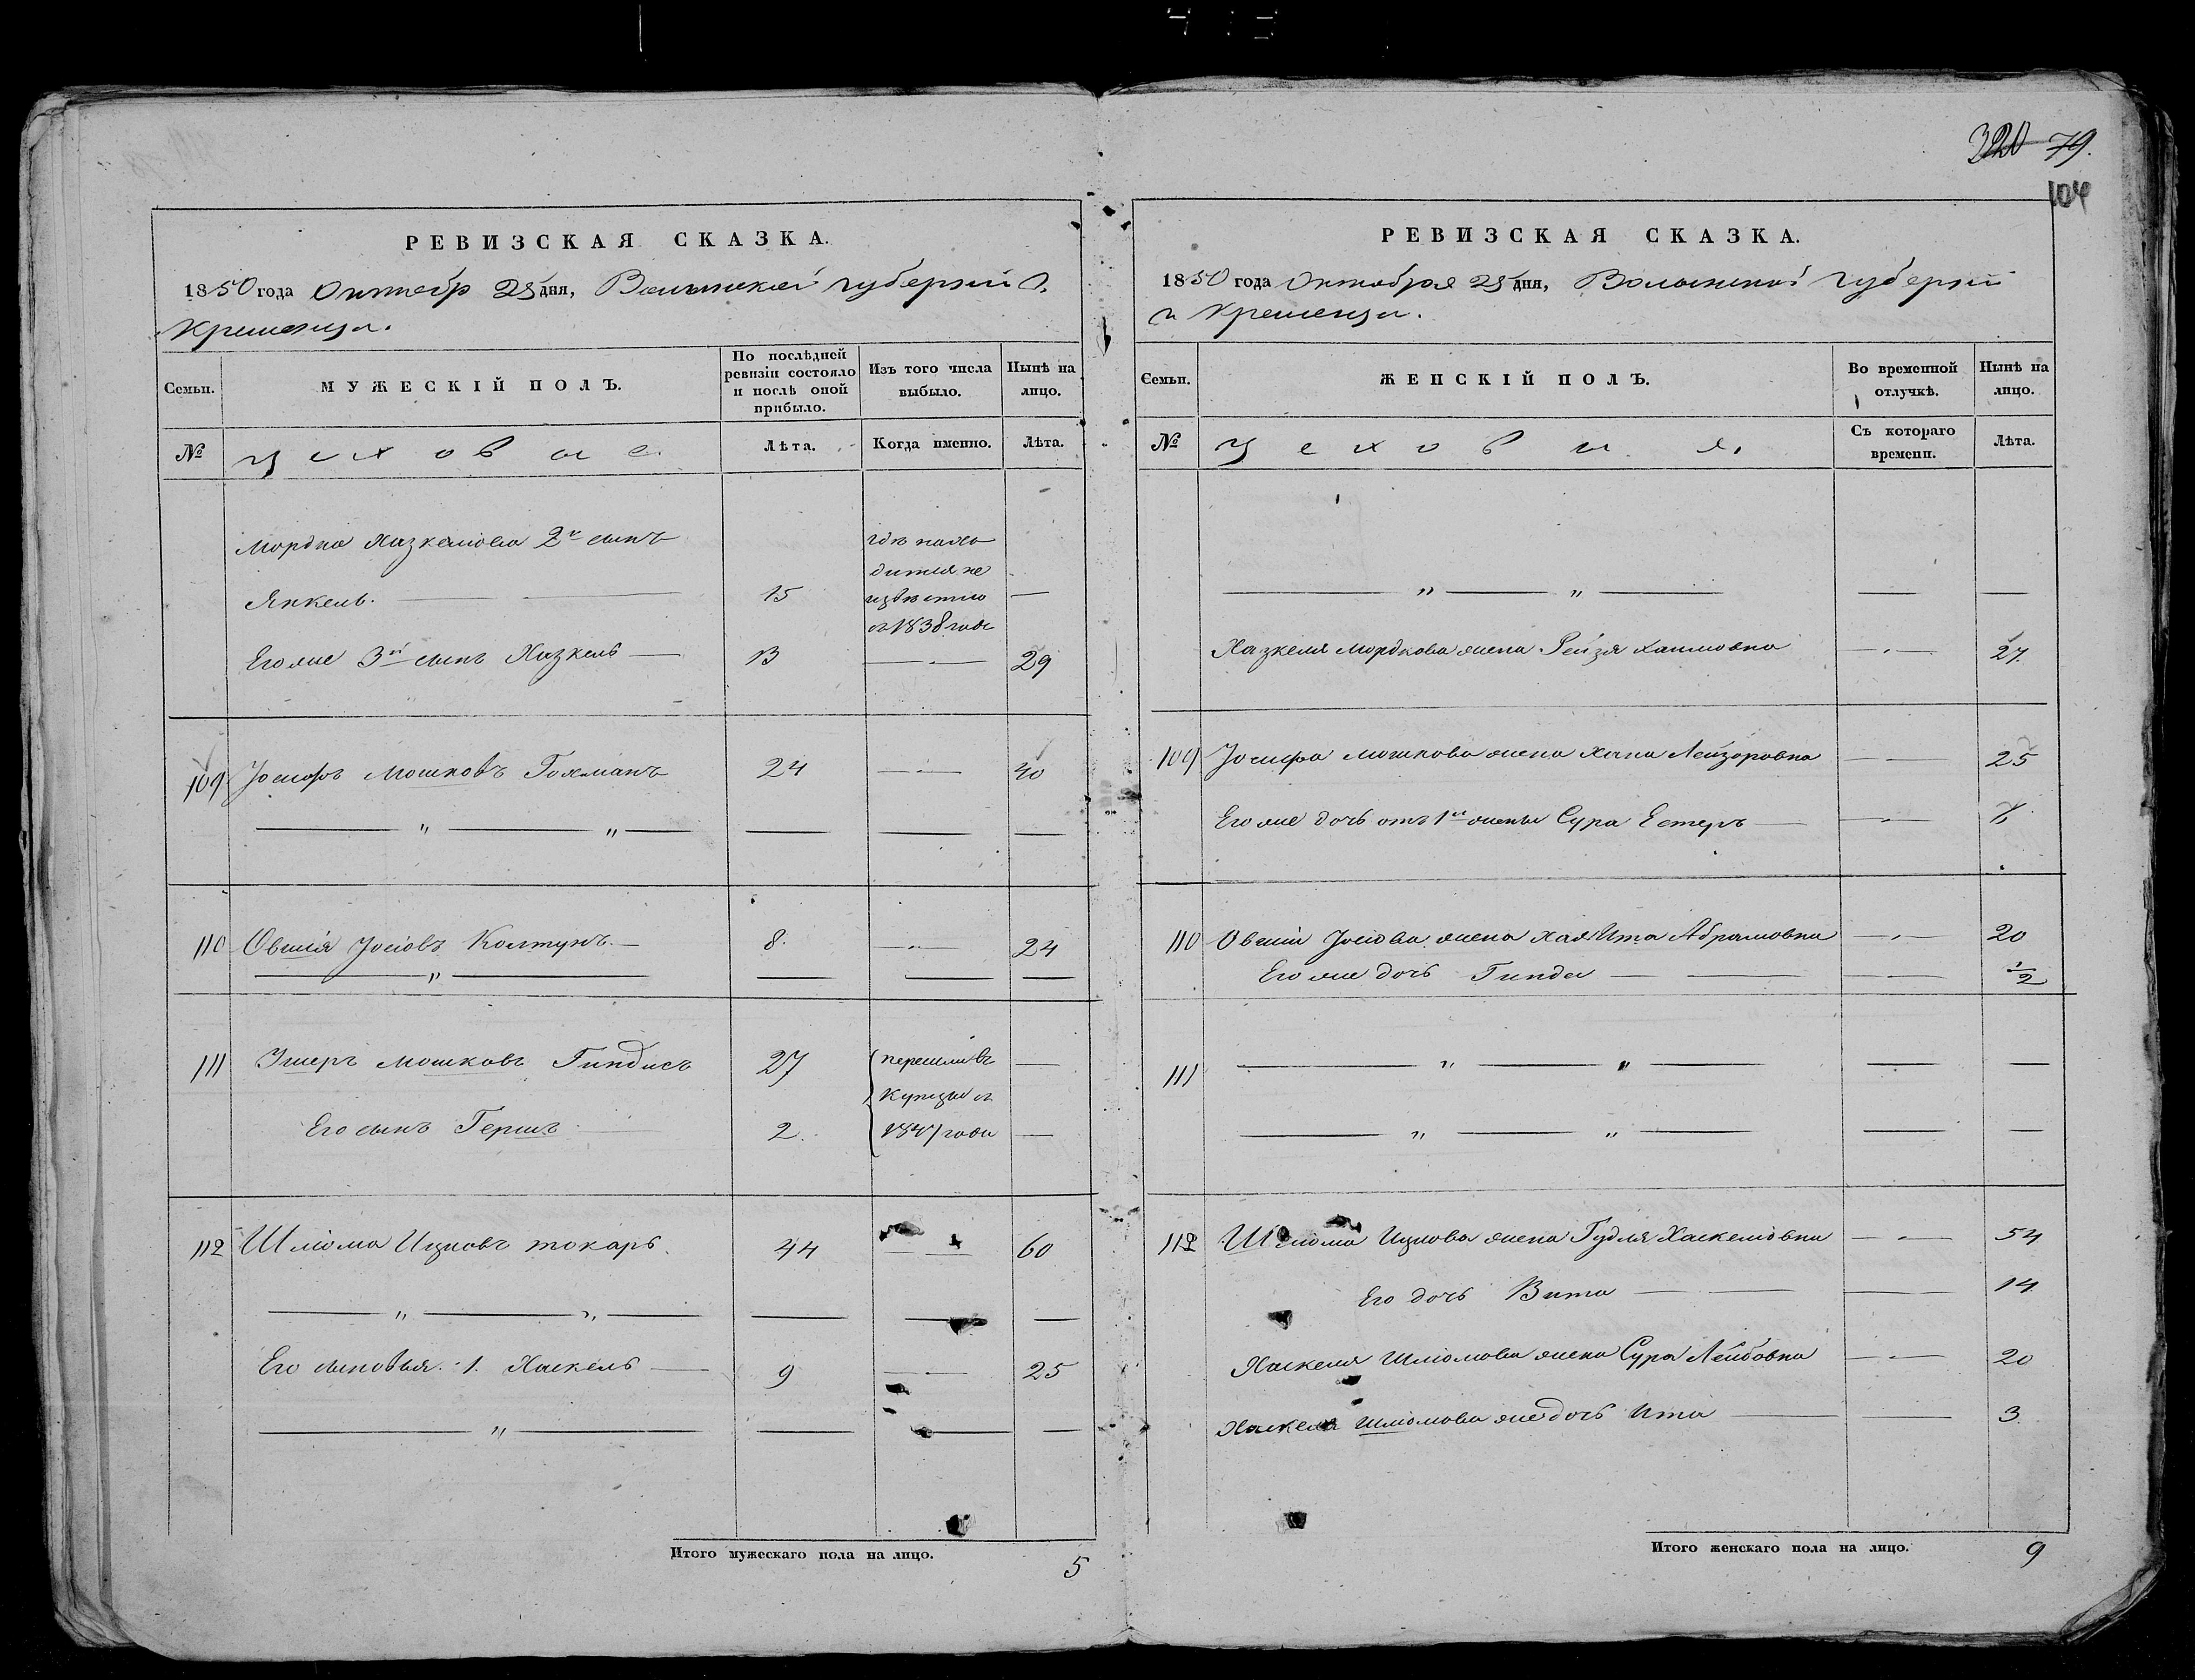 320 79.
104
РЕВИЗСКАЯ СКАЗКА.
1850 года Октябр 25 дня, Волынской губернии г.
Кременца.
Семьи.
МУЖЕСКІЙ ПОЛЪ.
По послѣдней
ревизіи состояло
и послѣ оной
прибыло.
Изъ того числа
выбыло.
Нынѣ на
лицо.
№
Цеховые.
Лѣта.
Когда именно.
Лѣта.
Мордка Хазкелиова 2й сынъ
Янкель. 15
гдѣ нахо
дится не
извѣстно
съ 1838 года
Его же 3й сынъ Хазкель 13 29
109 Іосифъ Мошковъ Гохманъ 24 40
110 Овшія Іосіовъ Колтунъ. 8. 24
111 Эшеръ Мошковъ Гиндисъ 27
Его сынъ Гершъ 2.
перешли въ
купцы съ
1847 года
112 Шліома Ицковъ токарь. 44 60
Его сыновья: 1. Хаскель 9 25
Итого мужескаго пола на лицо.
5
РЕВИЗСКАЯ СКАЗКА.
1850 года Октября 25 дня, Волынской Губерніи
г. Кременца.
Семьи.
ЖЕНСКІЙ ПОЛЪ.
Во временной
отлучкѣ.
Нынѣ на
лицо.
№
Цеховыя.
Съ котораго
времени.
Лѣта.
Хазкеля Мордкова жена Рейзя Хаимовна 27.
109 Іосифа Мошкова жена Хана Лейзоровна 25
Его же дочь отъ 1й жены Сура Естеръ
110 Овшіи Іосіова жена Хая Ита Абрамовна 20
Его же дочь Гинда 1/2
111
112 Шліома Ицкова жена Гудля Хаскеліовна 54
Его дочь Вита 14
Хаскеля Шліомова жена Сура Лейбовна 20
Хаскеля Шліомова же дочь Ита 3
Итого женскаго пола на лицо.
9